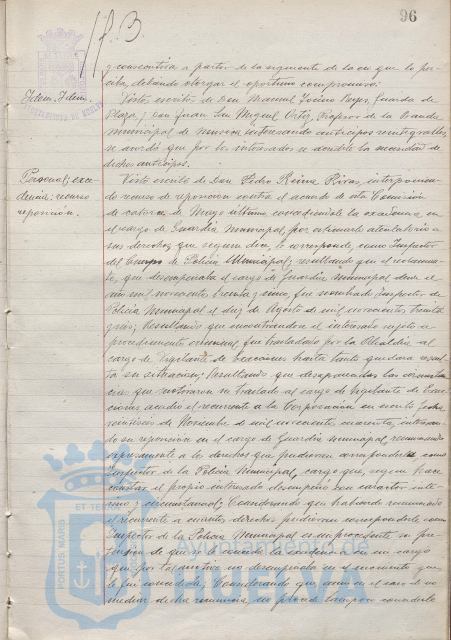 96
y consecutiva a partir de la siguiente de la en que lo per-
ciba, debiendo otorgar el oportuno compromiso.
Idem. Idem.
Visto escritos de Don Manuel Reyes, Guarda de
Plaza, y Don Juan San Miguel Ortiz, Profesor de la Banda
municipal de musica interesando anticipos reintegrables
se acordó que por los interesados se acredite la necesidad de
dichos anticipos.
Personal; exce-
dencia; recurso
reposición.
Visto escrito de Don Pedro Reina Rivas, interponien-
do recurso de reposición contra el acuerdo de esta Comisión
de catorce de Mayo último concediendole la excedencia en
el cargo de Guardia municipal, por estimarlo atentatorio a
sus derechos que segun dice, le corresponde, como Inspector
del Cuerpo de Policia Municipal; resultando que el reclaman-
te, que desempeñaba el cargo de Guardia Municipal desde el
año mil novecientos treinta y cinco, fue nombrado Inspector de
Policia Municipal el diez de Agosto de mil novecientos treinta
y seis; Resultando que encontrandose el interesado sujeto a
procedimiento criminal fue trasladado por la Alcaldia al
cargo de Vigilante de hasta tanto quedara resuel-
ta su situación; Resultando que desaparecidas las circunstan-
cias que motivaron su traslado al cargo de Vigilante de
acudió el recurrente a la Corporación en escrito fecha
veintiseis de Noviembre de mil novecientos cuarenta, interesan-
do su reposición en el cargo de Guardia municipal, renunciando
expresamente a los derechos que pudieran corresponderle como
Inspector de la Policia Municipal, cargo que, segun hace
constar el propio interesado desempeñó con caracter inte-
rino y circunstancial; Considerando que habiendo renunciado
el recurrente a cuantos derechos pudieran corresponderle como
Inspector de la Policia Municipal es improcedente su pre-
tensión de que se le conceda la excedencia en un cargo
que por los motivos no desempeñaba en el momento que
le fue concedida; Considerando que, aun en el caso de no
mediar dicha renuncia, no procede tampoco concederle
PORTUS MARIS
ET TERRAE
Ayuntamiento de
HUELVA